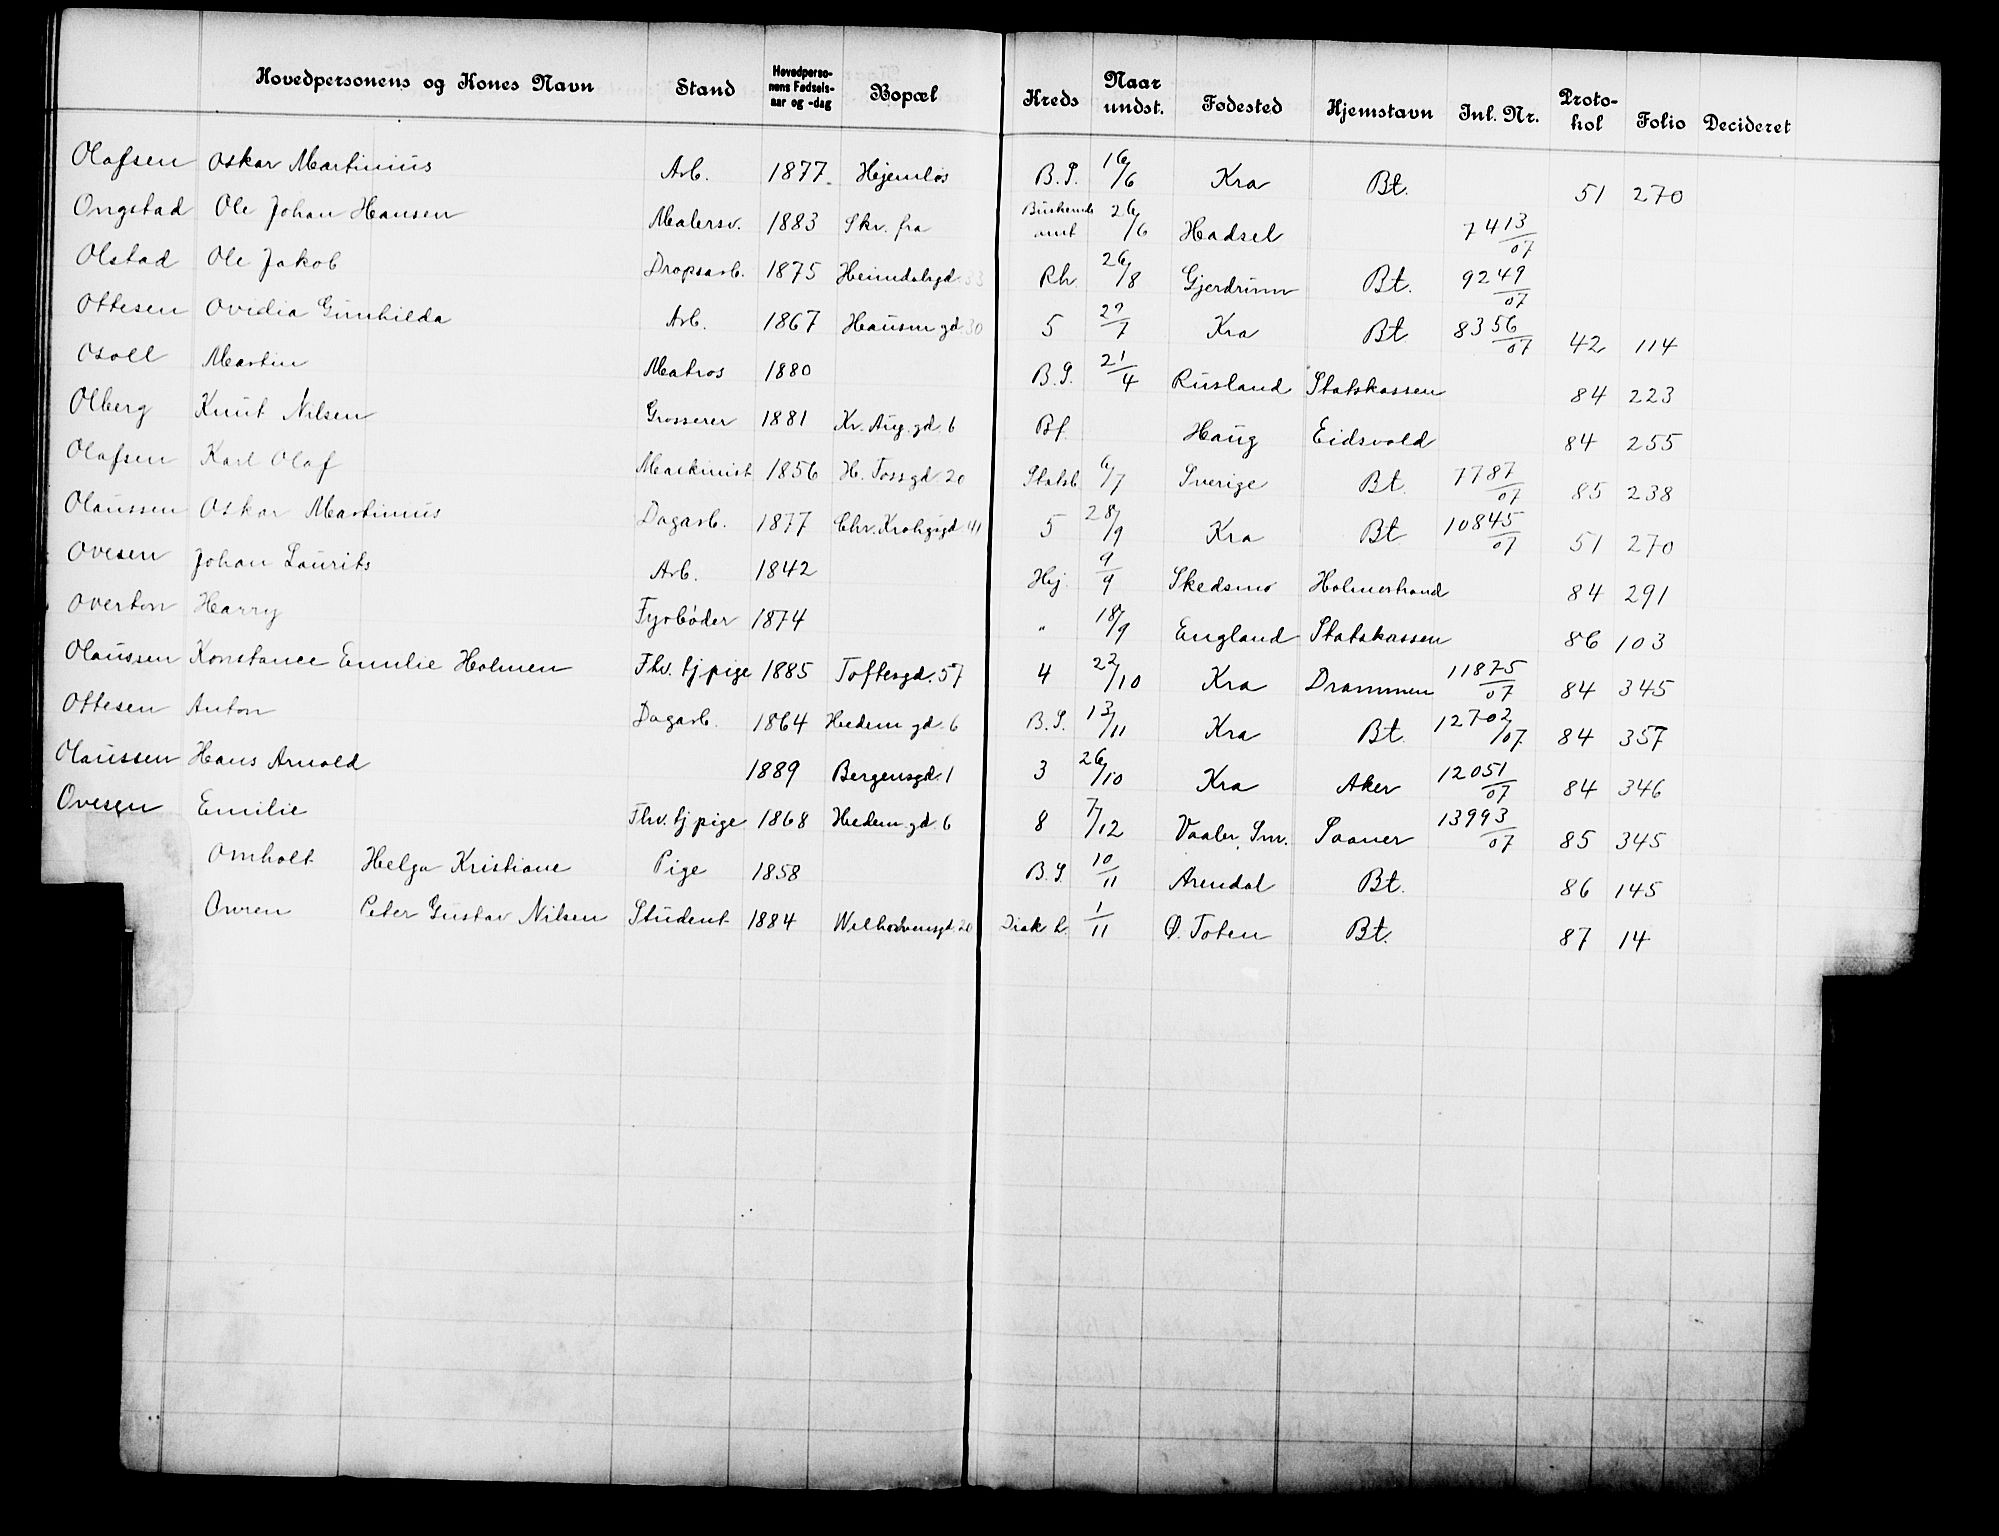 Hovedpersonens og Kones Navn Stand Hovedpersonens Fødselsaar og -dag Bopæl Kreds Naar undst. Fødested Hjemstavn Inl. Nr. Protokol Folio Decideret
Olafsen Oskar Martinius Arb. 1877. Hjemløs B.S. 16/6 Kra Bt. 51 270
Ongstad Ole Johan Hansen Malersv. 1883 Skr. fra Buskeruds amt 26/6 Hadsel 7413/07
Olstad Ole Jakob Dropsarb. 1875 Heimdalsgd. 33 Rh 26/8 Gjerdrum Bt. 9249/07
Ottesen Ovidia Gunhilda Arb. 1867 Hausm gd. 30 5 22/7 Kra Bt 8356/07 42 114
Osoll Martin Matros 1880 B.S. 21/4 Rusland Statskassen 84 223
Olberg Knut Nilsen Grosserer 1881 Kr. Aug. gd. 6 Bf. Haug Eidsvold 84 255
Olafsen Karl Olaf Maskinist 1856 H. Tossgd 20 Statsb 6/7 Sverige Bt. 7787/07 85 238
Olaussen Oskar Martinius Dagarb. 1877 Chr. Krohgsgd 41 5 28/9 Kra Bt 10845/07 51 270
Ovesen Johan Laurits Arb. 1842 Hj. 9/9 Skedsmo Holmestrand 84 291
Overton Harry Fyrbøder 1874 " 18/9 England Statskassen 86 103
Olaussen Konstance Emilie Holmen Fhv. tj pige 1885 Toftesgd. 57 4 22/10 Kra Drammen 11875/07 84 345
Ottesen Anton Dagarb. 1864 Hedem gd. 6 B.S. 13/11 Kra Bt. 12702/07. 84 357
Olaussen Hans Arnold 1889 Bergensgd. 1 3 26/10 Kra Aker 12051/07 84 346
Ovesen Emilie Fhv. tj pige 1868 Hedem gd. 6 8 7/12 Vaaler, Sm. Saaner 13993/07 85 345
Omholt Helga Kristiane Pige 1858 B.S. 10/11 Arendal Bt. 86 145
Owren Peter Gustav Nilsen Student 1884 Welhavensgd. 20 Diak h. 1/11 Ø. Toten Bt. 87 14